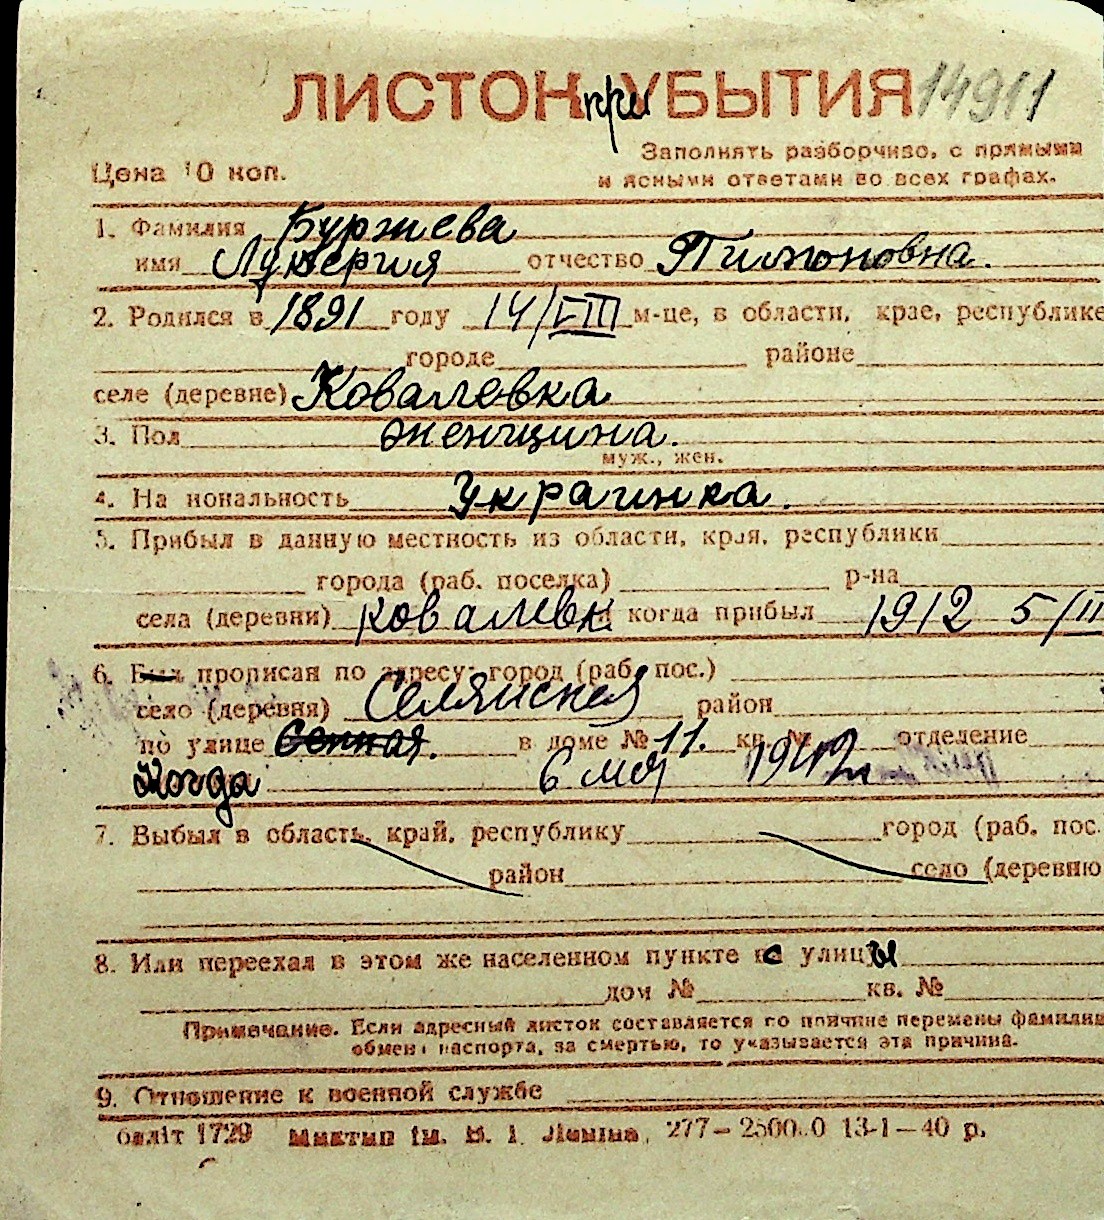 ЛИСТОК при УБЫТИЯ 14911
Заполнять разборчиво, с прямыми
Цена 10 коп.
и ясными ответами во всех графах.
1. Фамилия Буржева
имя Лукерия отчество Тимоновна.
2. Родился в 1891 году 14/VIII м-це, в области, крае, республике
городе районе
селе (деревне) Ковалевка
3. Пол женщина.
муж., жен.
4. На иональность Украинка.
5. Прибыл в данную местность из области, края, республики
города (раб. поселка) р-на
села (деревни) Ковалевк когда прибыл 1912 5/II
6. Был прописан по адресу: город (раб. пос.)
село (деревня) район
по улице Сенная. в доме № 11. кв. № отделение
Когда 6 мая
7. Выбыл в область, край, республику город (раб. пос.
район село (деревню
8. Или переехал в этом же населенном пункте с улицы
дом № кв. №
Примечание. Если адресный листок составляется по причине перемены фамилии
обмена паспорта, за смертью, то указывается эта причина.
9. Отношение к военной службе
1729 ім. В. І. Леніна, 277—2500.0 13-1—40 р.